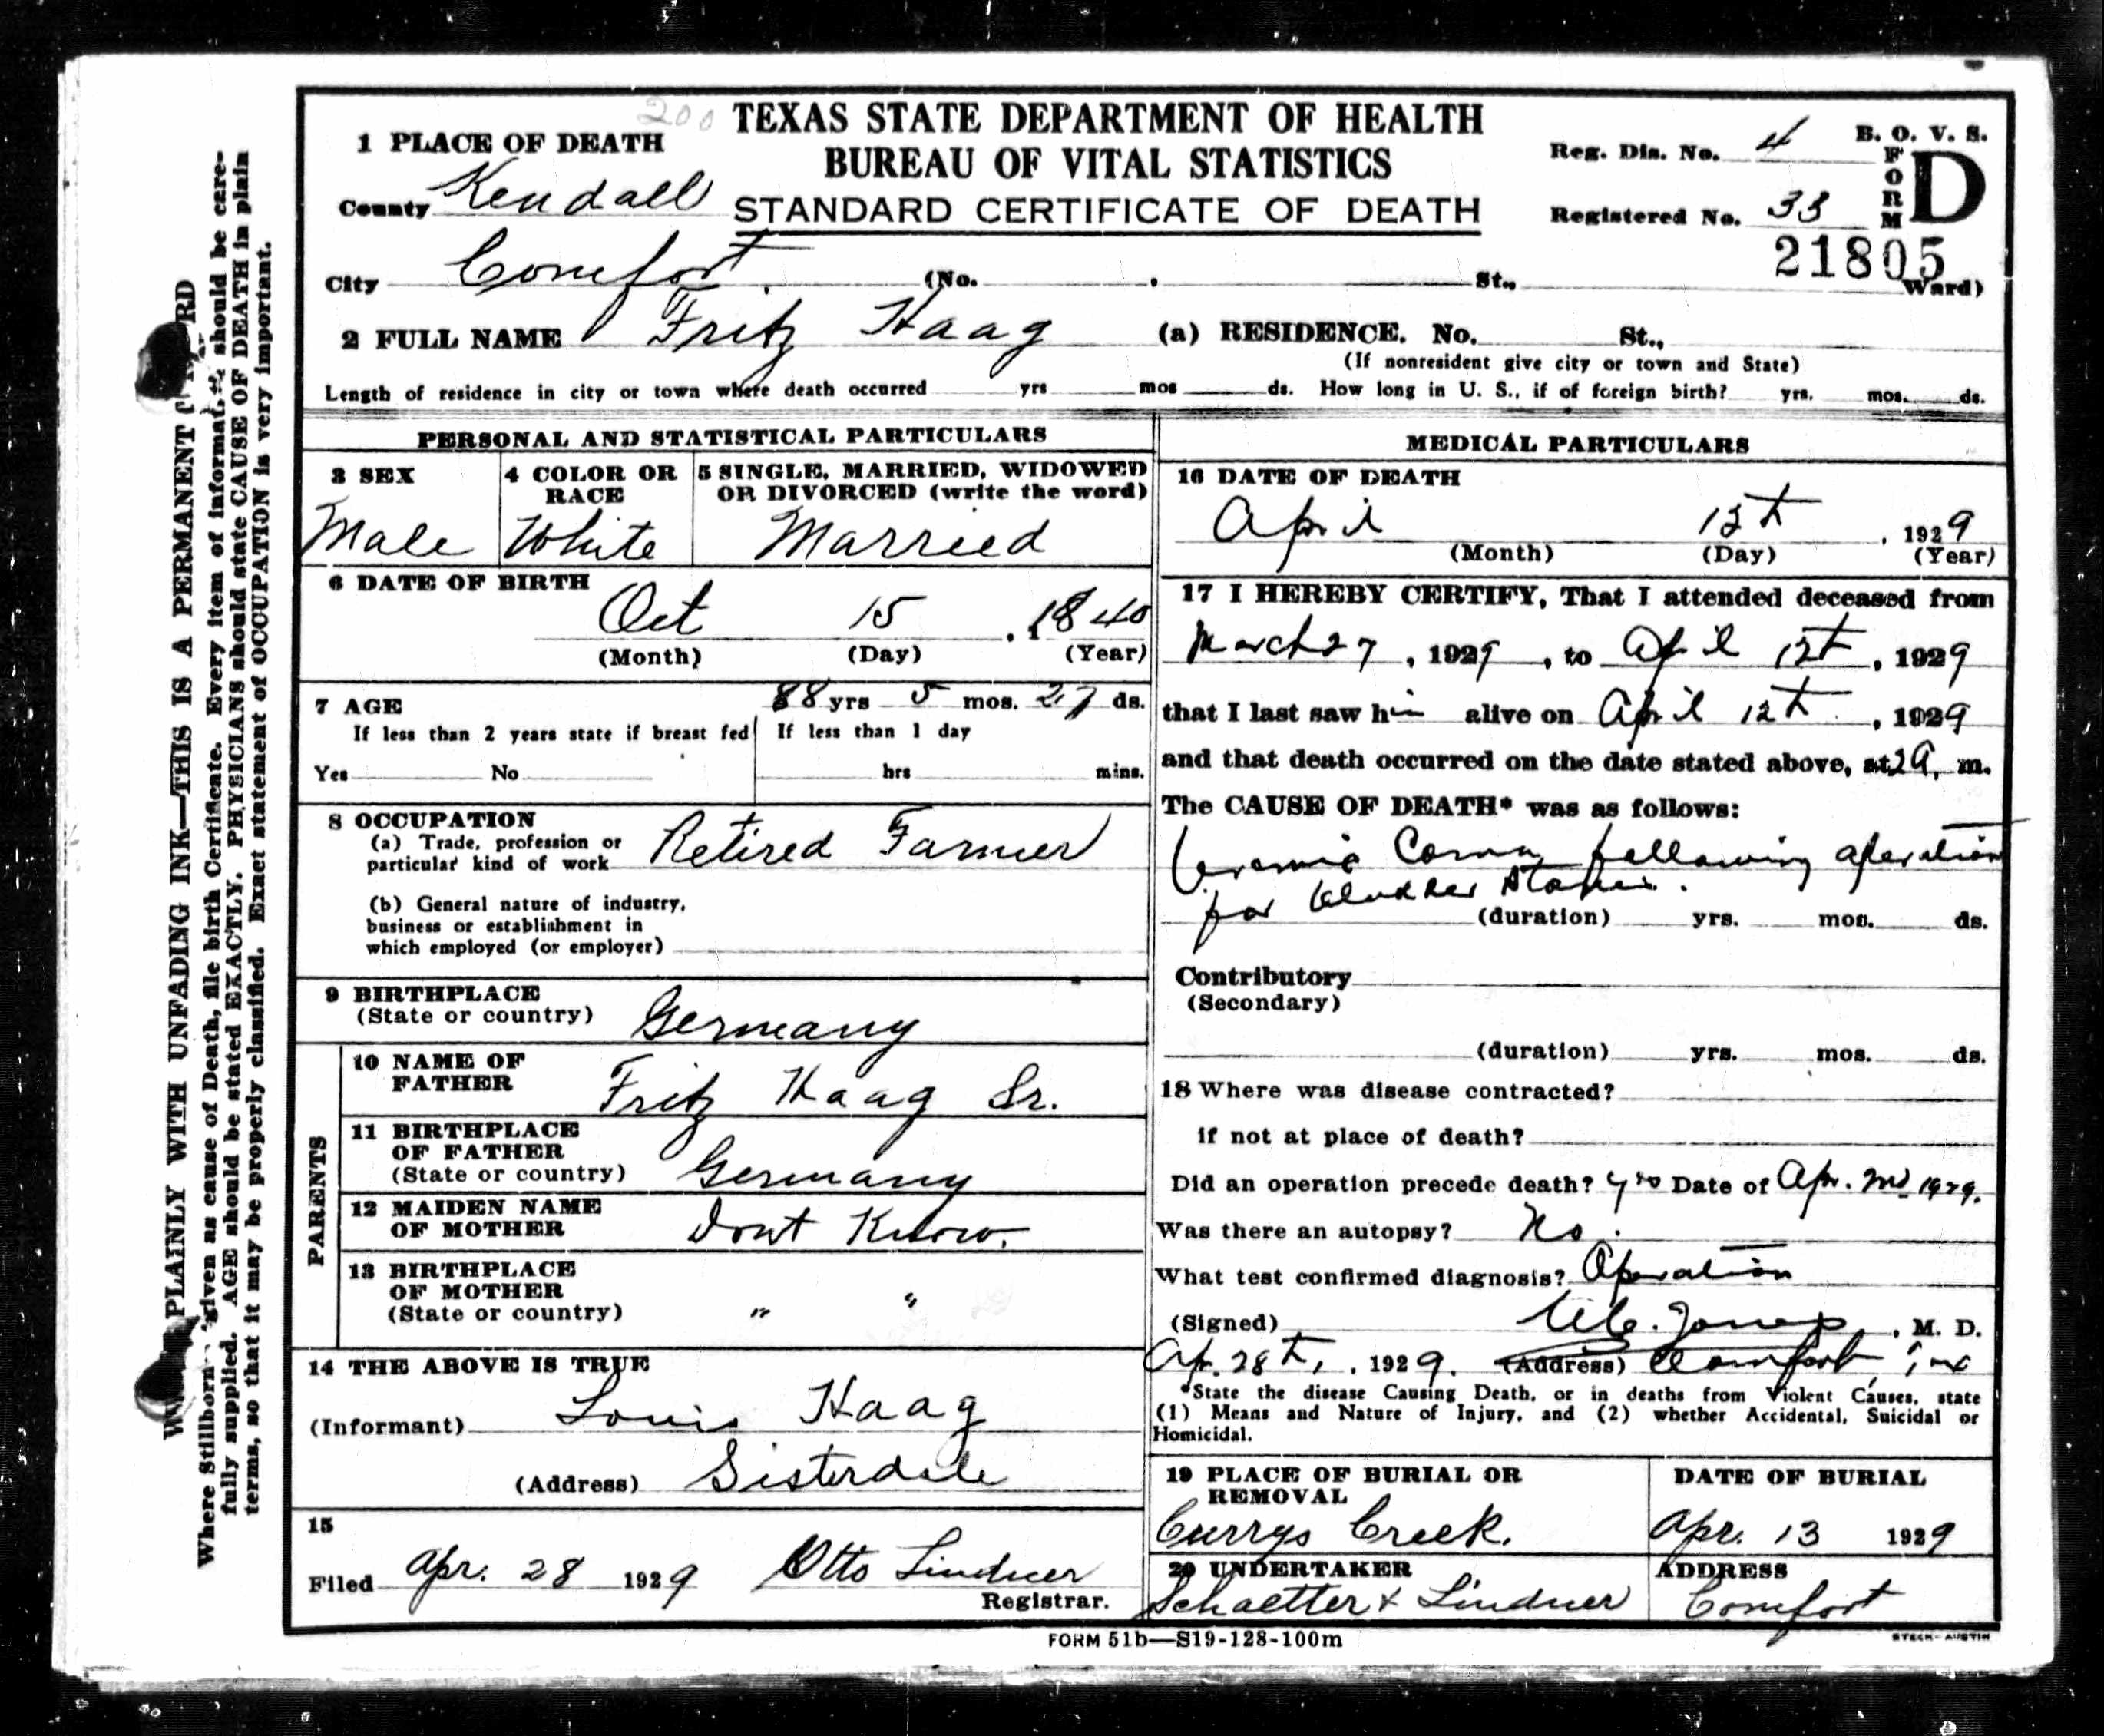 200
TEXAS STATE DEPARTMENT OF HEALTH
BUREAU OF VITAL STATISTICS
STANDARD CERTIFICATE OF DEATH
B. O. V. S.
FORM D
Reg. Dis. No. 4
Registered No. 33
21805
1 PLACE OF DEATH
County Kendall
City Comfort. (No. . St., Ward)
2 FULL NAME Fritz Haag (a) RESIDENCE. No. St.,
(If nonresident give city or town and State)
Length of residence in city or town where death occurred yrs mos ds. How long in U. S., if of foreign birth? yrs. mos. ds.
PERSONAL AND STATISTICAL PARTICULARS
3 SEX
Male
4 COLOR OR RACE
White
5 SINGLE, MARRIED, WIDOWED
OR DIVORCED (write the word)
Married
6 DATE OF BIRTH
Oct 15, 1840
(Month) (Day) (Year)
7 AGE 88 yrs 5 mos. 27 ds.
If less than 2 years state if breast fed
Yes No
If less than 1 day
hrs mins.
8 OCCUPATION
(a) Trade, profession or
particular kind of work Retired Farmer
(b) General nature of industry,
business or establishment in
which employed (or employer)
9 BIRTHPLACE
(State or country) Germany
PARENTS
10 NAME OF
FATHER Fritz Haag Sr.
11 BIRTHPLACE
OF FATHER
(State or country) Germany
12 MAIDEN NAME
OF MOTHER Dont Know.
13 BIRTHPLACE
OF MOTHER
(State or country) " "
14 THE ABOVE IS TRUE
(Informant) Louis Haag
(Address) Sisterdale
15
Filed Apr. 28 1929 Otto Lindner
Registrar.
MEDICAL PARTICULARS
16 DATE OF DEATH
April 12th, 1929
(Month) (Day) (Year)
17 I HEREBY CERTIFY, That I attended deceased from
March 27, 1929, to April 12th, 1929
that I last saw him alive on April 12th, 1929
and that death occurred on the date stated above, at 2 A, m.
The CAUSE OF DEATH* was as follows:
Uremic Coma following operation
for bladder stones.
(duration) yrs. mos. ds.
Contributory
(Secondary)
(duration) yrs. mos. ds.
18 Where was disease contracted?
if not at place of death?
Did an operation precede death? yes Date of Apr. 1929.
Was there an autopsy? No.
What test confirmed diagnosis? Operation
(Signed) Jones, M. D.
Ap. 28th, , 1929. (Address) Comfort, Tex
*State the disease Causing Death, or in deaths from Violent Causes, state
(1) Means and Nature of Injury, and (2) whether Accidental, Suicidal or
Homicidal.
19 PLACE OF BURIAL OR
REMOVAL
Currys Creek.
DATE OF BURIAL
Apr. 13 1929
20 UNDERTAKER
Schaetter & Lindner
ADDRESS
Comfort
FORM 51b—S19-128-100m
STECK-AUSTIN
PLAINLY WITH UNFADING INK—THIS IS A PERMANENT
Where Stillborn given as cause of Death, file birth Certificate. Every item of information should be care-
fully supplied. AGE should be stated EXACTLY. PHYSICIANS should state CAUSE OF DEATH in plain
terms, so that it may be properly classified. Exact statement of OCCUPATION is very important.